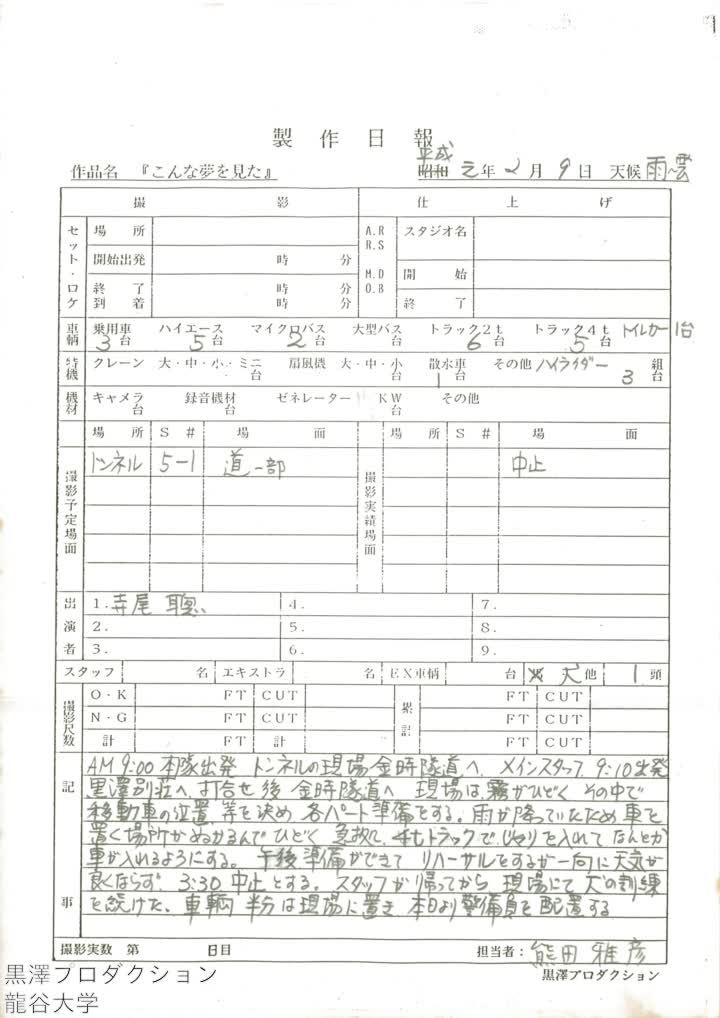 製作日報
作品名 『こんな夢を見た』 昭和 平成 元年 2月 9日 天候 雨~曇
撮影 仕上げ
セット・ロケ 場所 A.R R.S スタジオ名
開始出発 時 分 M.D O.B 開始
終了到着 時 分 終了
車輌 乗用車 3台 ハイエース 5台 マイクロバス 2台 大型バス 台 トラック2t 6台 トラック4t 5台 トイレカー1台
特機 クレーン 大・中・小・ミニ 台 扇風機 大・中・小 台 散水車 1台 その他 ハイライダー 3 組台
機材 キャメラ 台 録音機材 台 ゼネレーター KW 台 その他
場所 S# 場面 場所 S# 場面
撮影予定場面 トンネル 5-1 道一部 撮影実績場面 中止
出演者 1.寺尾 聰 4. 7.
2. 5. 8.
3. 6. 9.
スタッフ 名 エキストラ 名 EX車輌 台 犬他 1頭
撮影尺数 O・K FT CUT 累計 FT CUT
N・G FT CUT FT CUT
計 FT 計 FT CUT
記事
AM 9:00 本隊出発 トンネルの現場 金時隧道へ、メインスタッフ 9:10出発
黒澤別荘へ、打合せ後 金時隧道へ 現場は、霧がひどく その中で
移動車の位置、等を決め 各パート準備をする。雨が降っていたため車を
置く場所がぬかるんでひどく 急拠、4tトラックで、じゃりを入れて、なんとか
車が入れるようにする。午後 準備ができて リハーサルをするが一向に天気が
良くならず、3:30 中止とする。スタッフが帰ってから 現場にて 犬の訓練
を続けた、車輌 半分は現場に置き 本日より警備員を配置する
撮影実数 第 日目 担当者: 熊田 雅彦
黒澤プロダクション
黒澤プロダクション
龍谷大学